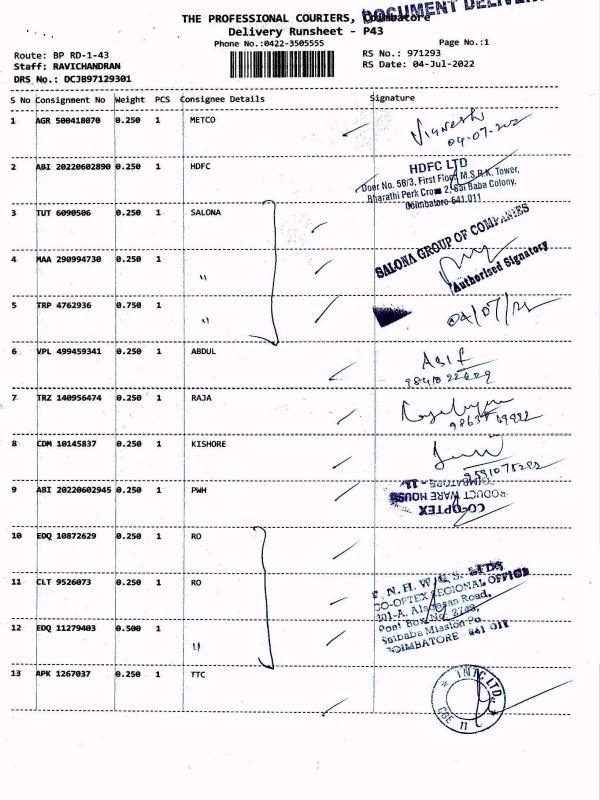 DOCUMENT DELIVER
THE PROFESSIONAL COURIERS, Coimbatore
Delivery Runsheet - P43
Phone No.:0422-3505555
Page No.:1
Route: BP RD-1-43
RS No.: 971293
Staff: RAVICHANDRAN
RS Date: 04-Jul-2022
DRS No.: DCJB97129301
S No Consignment No Weight PCS Consignee Details Signature
1 AGR 500418070 0.250 1 METCO Vignesh
04-07-202
2 ABI 20220602890 0.250 1 HDFC HDFC LTD
Door No. 56/3, First Floor, M.S.R.K. Tower,
Bharathi Perk Cross 2, Sai Baba Colony,
Coimbatore 641 011
3 TUT 6090506 0.250 1 SALONA
SALONA GROUP OF COMPANIES
4 MAA 290994730 0.250 1 "
Authorised Signatory
5 TRP 4762936 0.750 1 " 04/07/22
6 VPL 499459341 0.250 1 ABDUL Asif
7 TRZ 140956474 0.250 1 RAJA
8 CDM 10145837 0.250 1 KISHORE
9 ABI 20220602945 0.250 1 PWH
CO-OPTEX
PRODUCT WARE HOUSE
COIMBATORE - 11
10 EDQ 10872629 0.250 1 RO
11 CLT 9526073 0.250 1 RO
CO-OPTEX REGIONAL OFFICE
Post Box No. 2748,
Saibaba Mission Po
COIMBATORE - 641 011
12 EDQ 11279403 0.500 1 "
13 APK 1267037 0.250 1 TTC
LTD
CBE 11